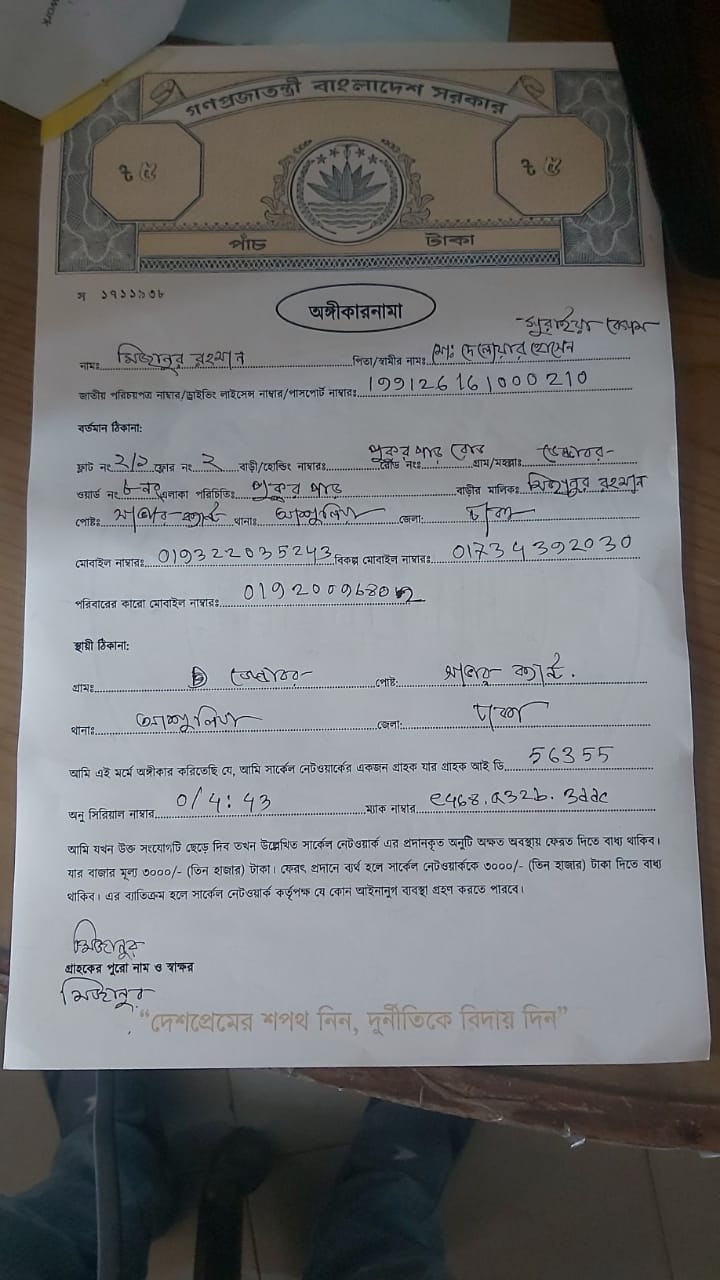 work
গণপ্রজাতন্ত্রী বাংলাদেশ সরকার
৳ ৫ ৳ ৫
পাঁচ টাকা
স ১৭১১৯৩৮
অঙ্গীকারনামা
সুরাইয়া বেগম
নামঃ মিজানুর রহমান পিতা/স্বামীর নামঃ মোঃ দেলোয়ার হোসেন
জাতীয় পরিচয়পত্র নাম্বার/ড্রাইভিং লাইসেন্স নাম্বার/পাসপোর্ট নাম্বারঃ 199126161000210
বর্তমান ঠিকানা:
ফ্লাট নং 2/১ ফ্লোর নং ২ বাড়ী/হোল্ডিং নাম্বারঃ রোড নংঃ পুকুর পাড় রোড গ্রাম/মহল্লাঃ
ওয়ার্ড নং ৮নং এলাকা পরিচিতিঃ পুকুর পাড় বাড়ীর মালিকঃ মিজানুর রহমান
পোষ্টঃ থানাঃ আশুলিয়া জেলা: ঢাকা
মোবাইল নাম্বারঃ 019322035243 বিকল্প মোবাইল নাম্বারঃ 01734392030
পরিবারের কারো মোবাইল নাম্বারঃ 0192009680
স্থায়ী ঠিকানা:
গ্রামঃ পোষ্ট:
থানাঃ আশুলিয়া জেলা: ঢাকা
আমি এই মর্মে অঙ্গীকার করিতেছি যে, আমি সার্কেল নেটওয়ার্কের একজন গ্রাহক যার গ্রাহক আই ডি 56355
অনু সিরিয়াল নাম্বার 0/4:43 ম্যাক নাম্বার e468.a32b.3ddc
আমি যখন উক্ত সংযোগটি ছেড়ে দিব তখন উল্লেখিত সার্কেল নেটওয়ার্ক এর প্রদানকৃত অনুটি অক্ষত অবস্থায় ফেরত দিতে বাধ্য থাকিব।
যার বাজার মূল্য ৩০০০/- (তিন হাজার) টাকা। ফেরৎ প্রদানে ব্যর্থ হলে সার্কেল নেটওয়ার্ককে ৩০০০/- (তিন হাজার) টাকা দিতে বাধ্য
থাকিব। এর ব্যতিক্রম হলে সার্কেল নেটওয়ার্ক কর্তৃপক্ষ যে কোন আইনানুগ ব্যবস্থা গ্রহণ করতে পারবে।
মিজানুর
গ্রাহকের পুরো নাম ও স্বাক্ষর
মিজানুর
“দেশপ্রেমের শপথ নিন, দুর্নীতিকে বিদায় দিন”